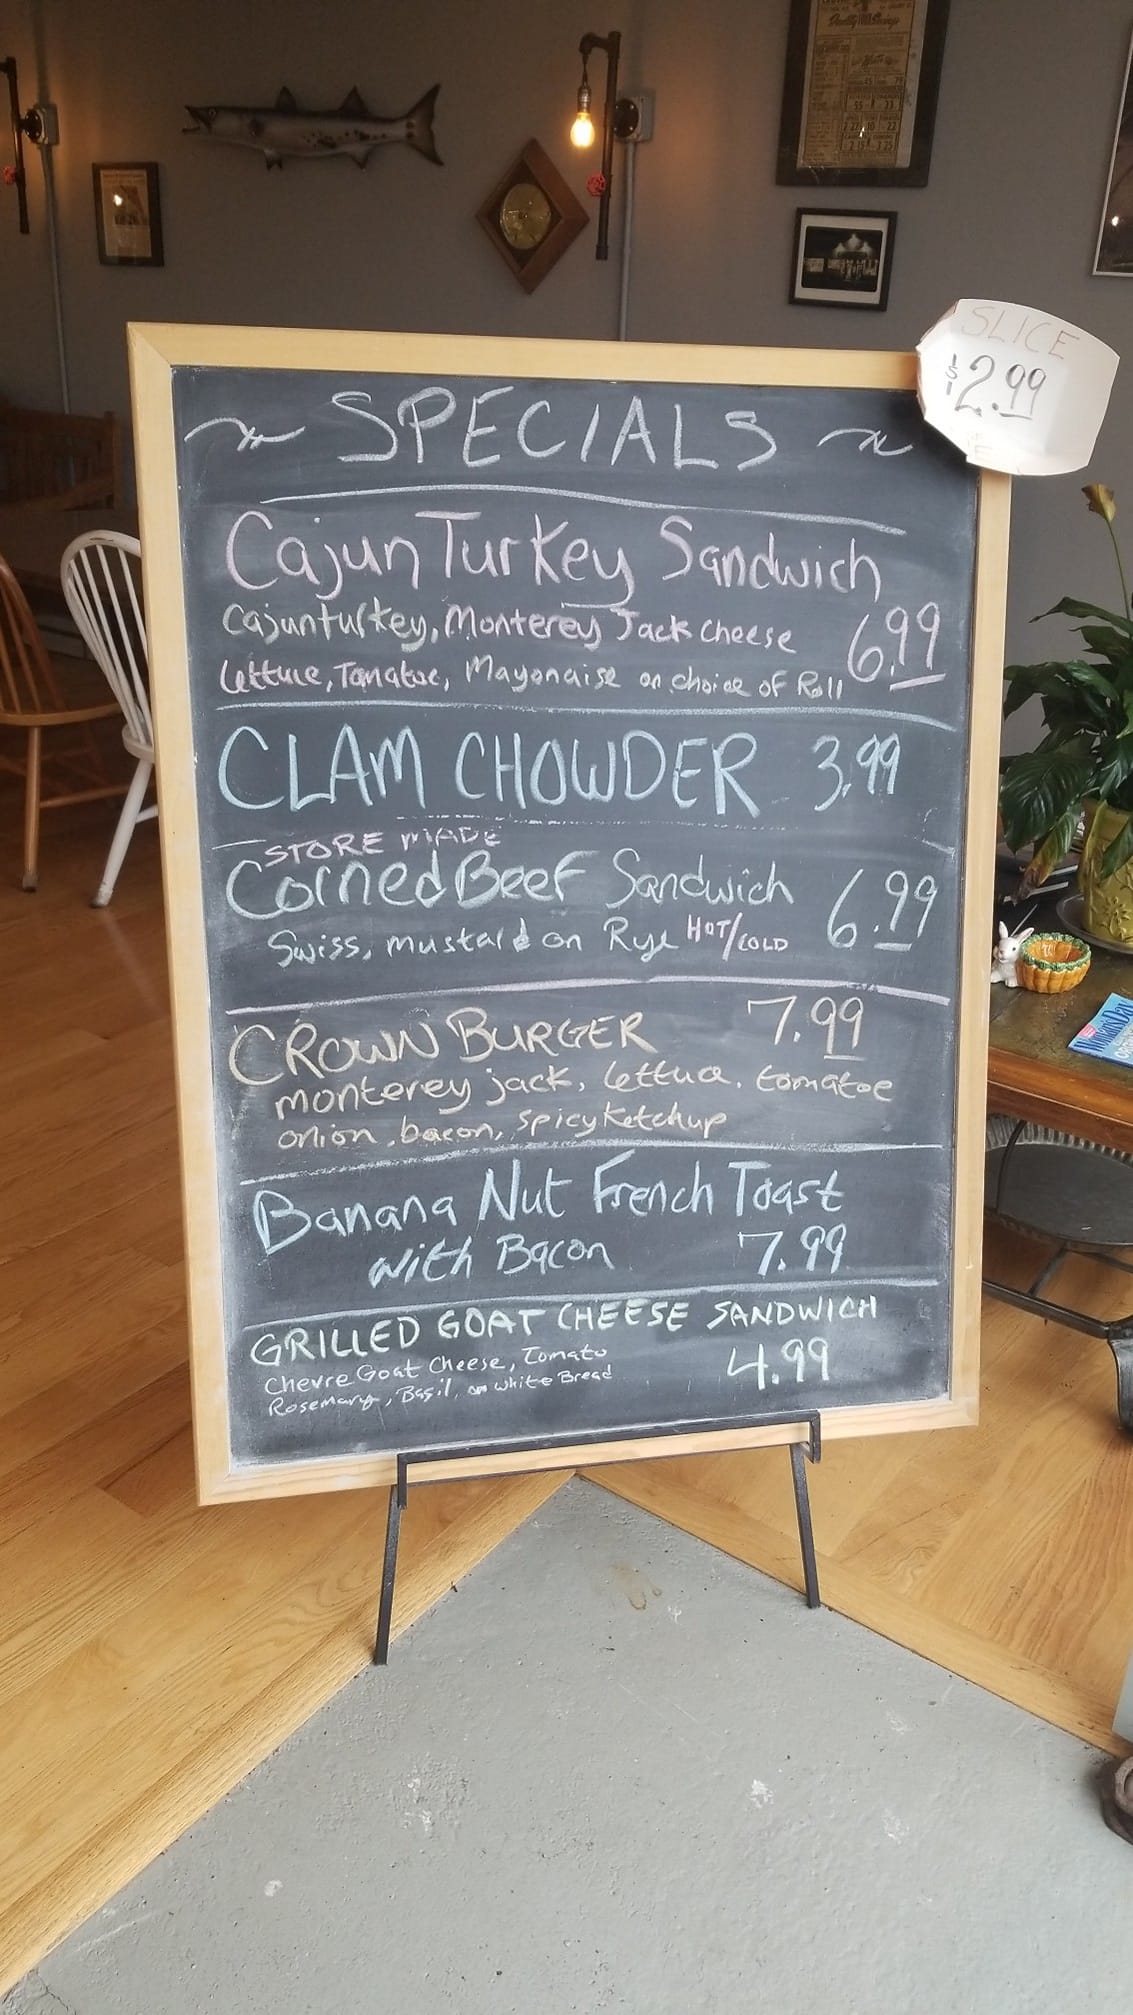 SLICE
$2.99
SPECIALS
Cajun Turkey Sandwich
Cajunturkey, Monterey Jack Cheese
6.99
Lettuce, Tomatoe, Mayonaise on choice of Roll
CLAM CHOWDER 3.99
STORE MADE
Corned Beef Sandwich
6.99
Swiss, mustard on Rye HOT/COLD
CROWN BURGER 7.99
monterey jack, lettuce, tomatoe
onion, bacon, spicy ketchup
Banana Nut French Toast
with Bacon 7.99
GRILLED GOAT CHEESE SANDWICH
4.99
Chevre Goat Cheese, Tomato
Rosemary, Basil, on white Bread
Woman'sDay